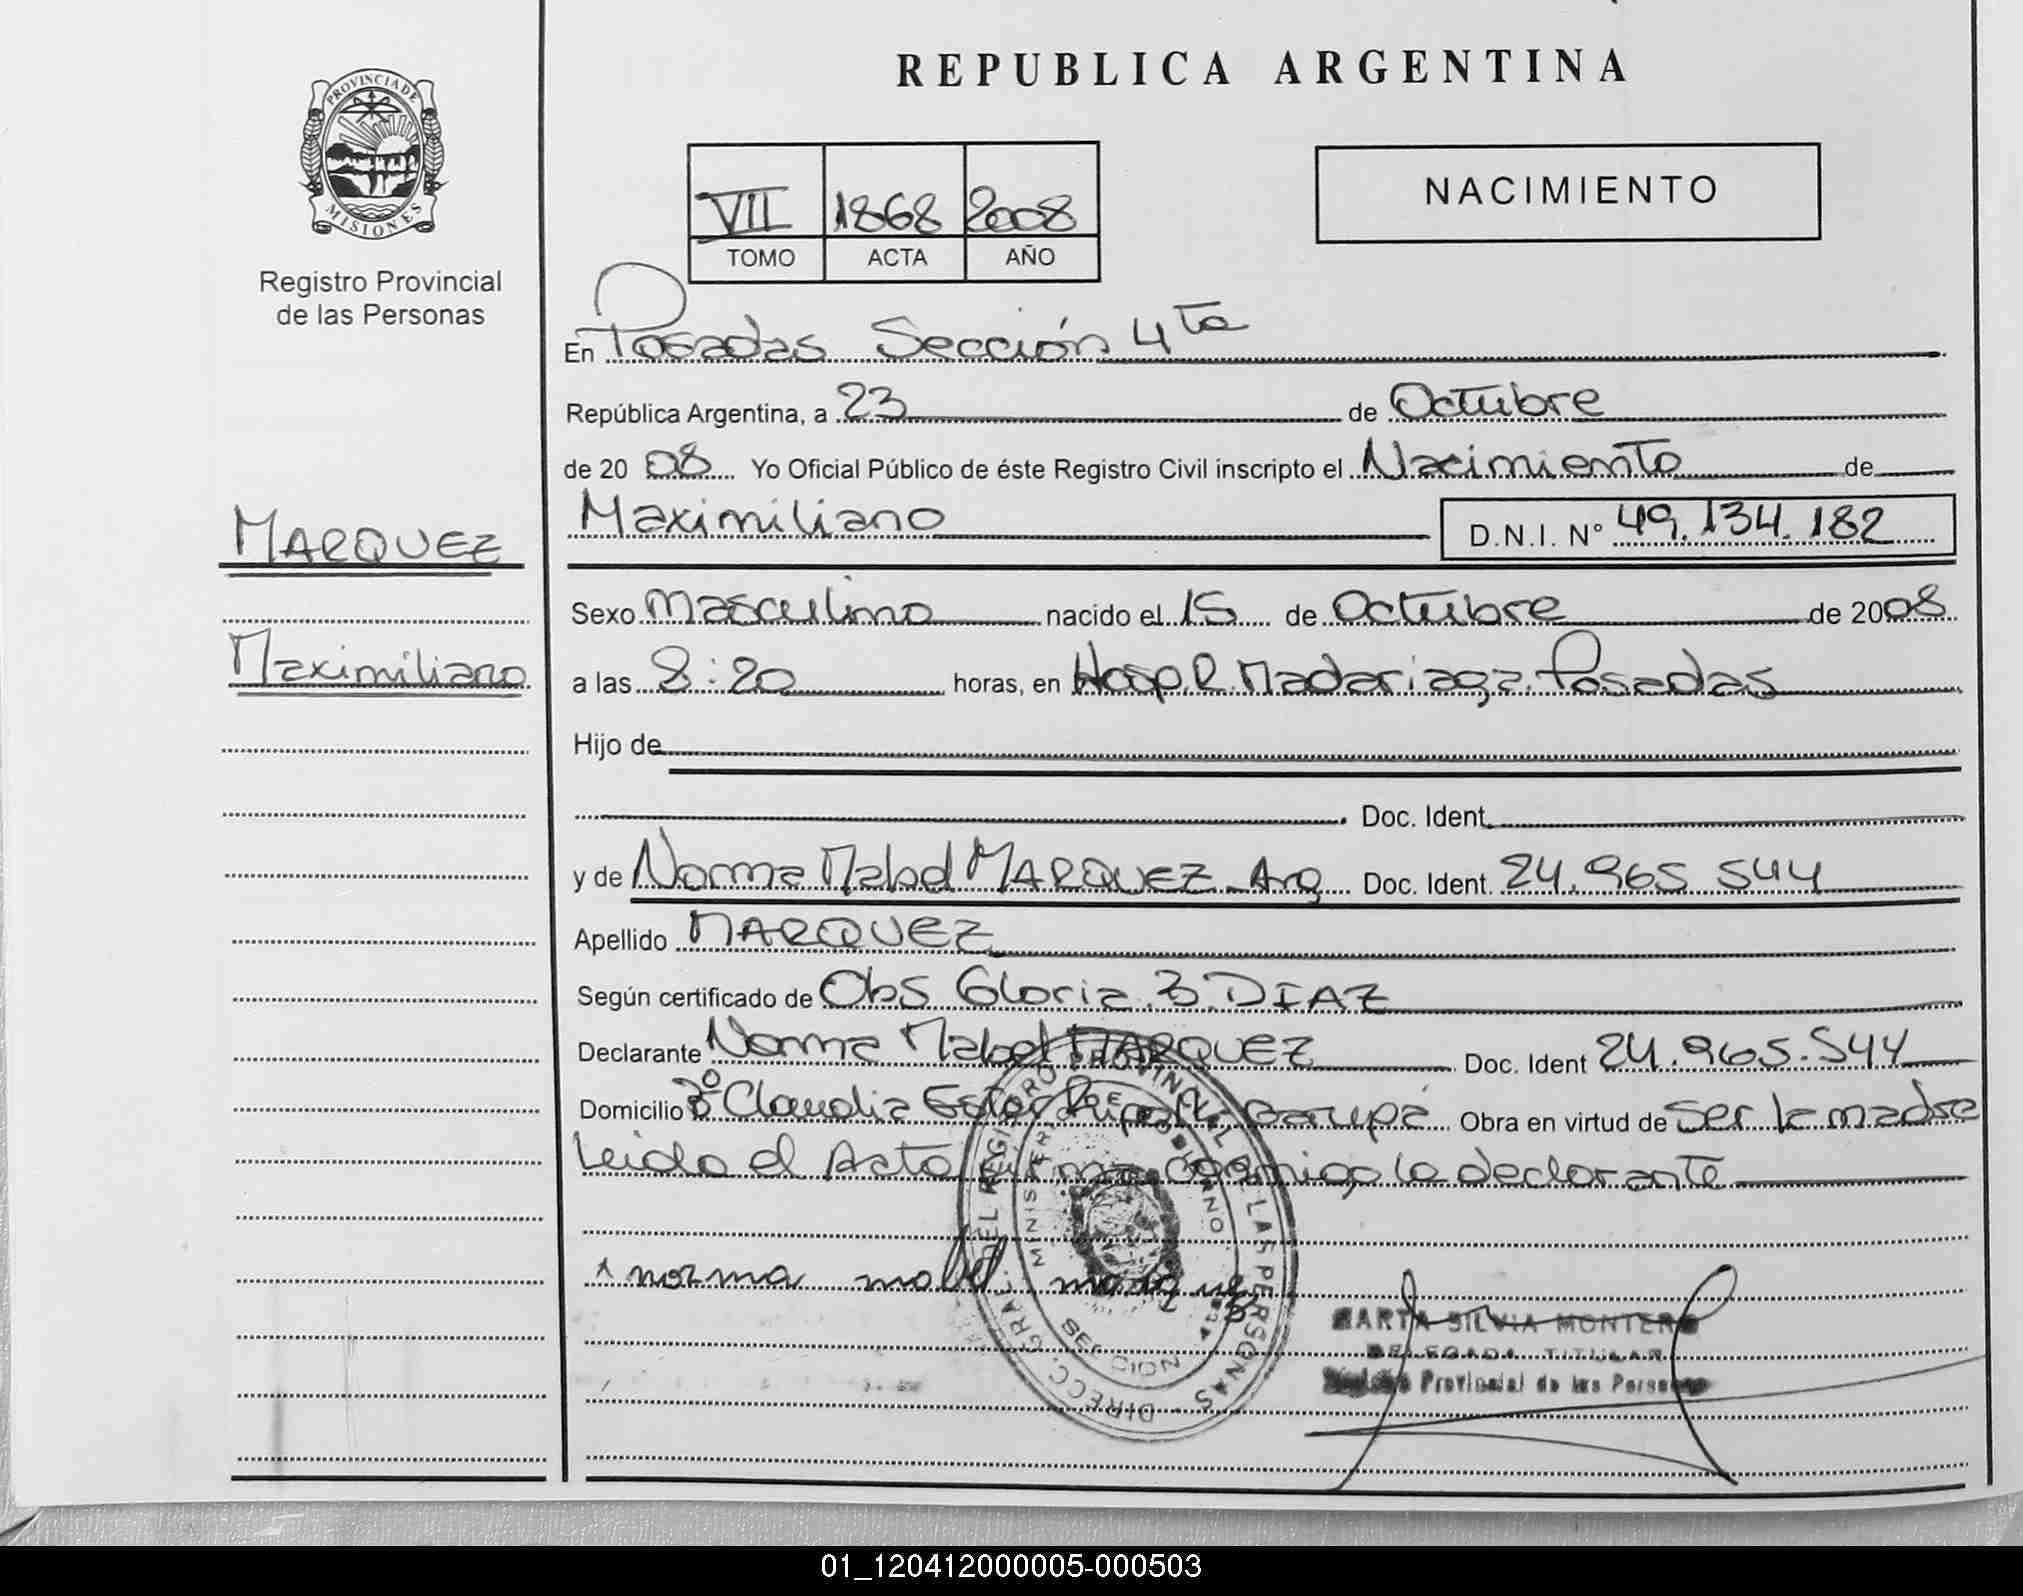 REPUBLICA ARGENTINA
PROVINCIA DE
MISIONES
Registro Provincial
de las Personas
VII 1868 2008
TOMO ACTA AÑO
NACIMIENTO
En Posadas Sección 4ta
República Argentina, a 23 de Octubre
de 2008 Yo Oficial Público de éste Registro Civil inscripto el Nacimiento de
Maximiliano D.N.I. Nº 49.134.182
MARQUEZ
Maximiliano
Sexo Masculino nacido el 15 de Octubre de 2008
a las 8:20 horas, en Hosp. R. Madariaga. Posadas
Hijo de
Doc. Ident.
y de Norma Mabel MARQUEZ Arg Doc. Ident. 24.965 544
Apellido MARQUEZ
Según certificado de Obs Gloria B. DIAZ
Declarante Norma Mabel MARQUEZ Doc. Ident 24.965.544
Domicilio Bº Claudia Ester Garupá Obra en virtud de ser la madre
Leido el Acta firma conmigo la declarante
norma mabel marquez
DIRECC. GRAL. DEL REGISTRO PROVINCIAL DE LAS PERSONAS
MARTA SILVIA MONTERO
DELEGADA TITULAR
Registro Provincial de las Personas
01_120412000005-000503